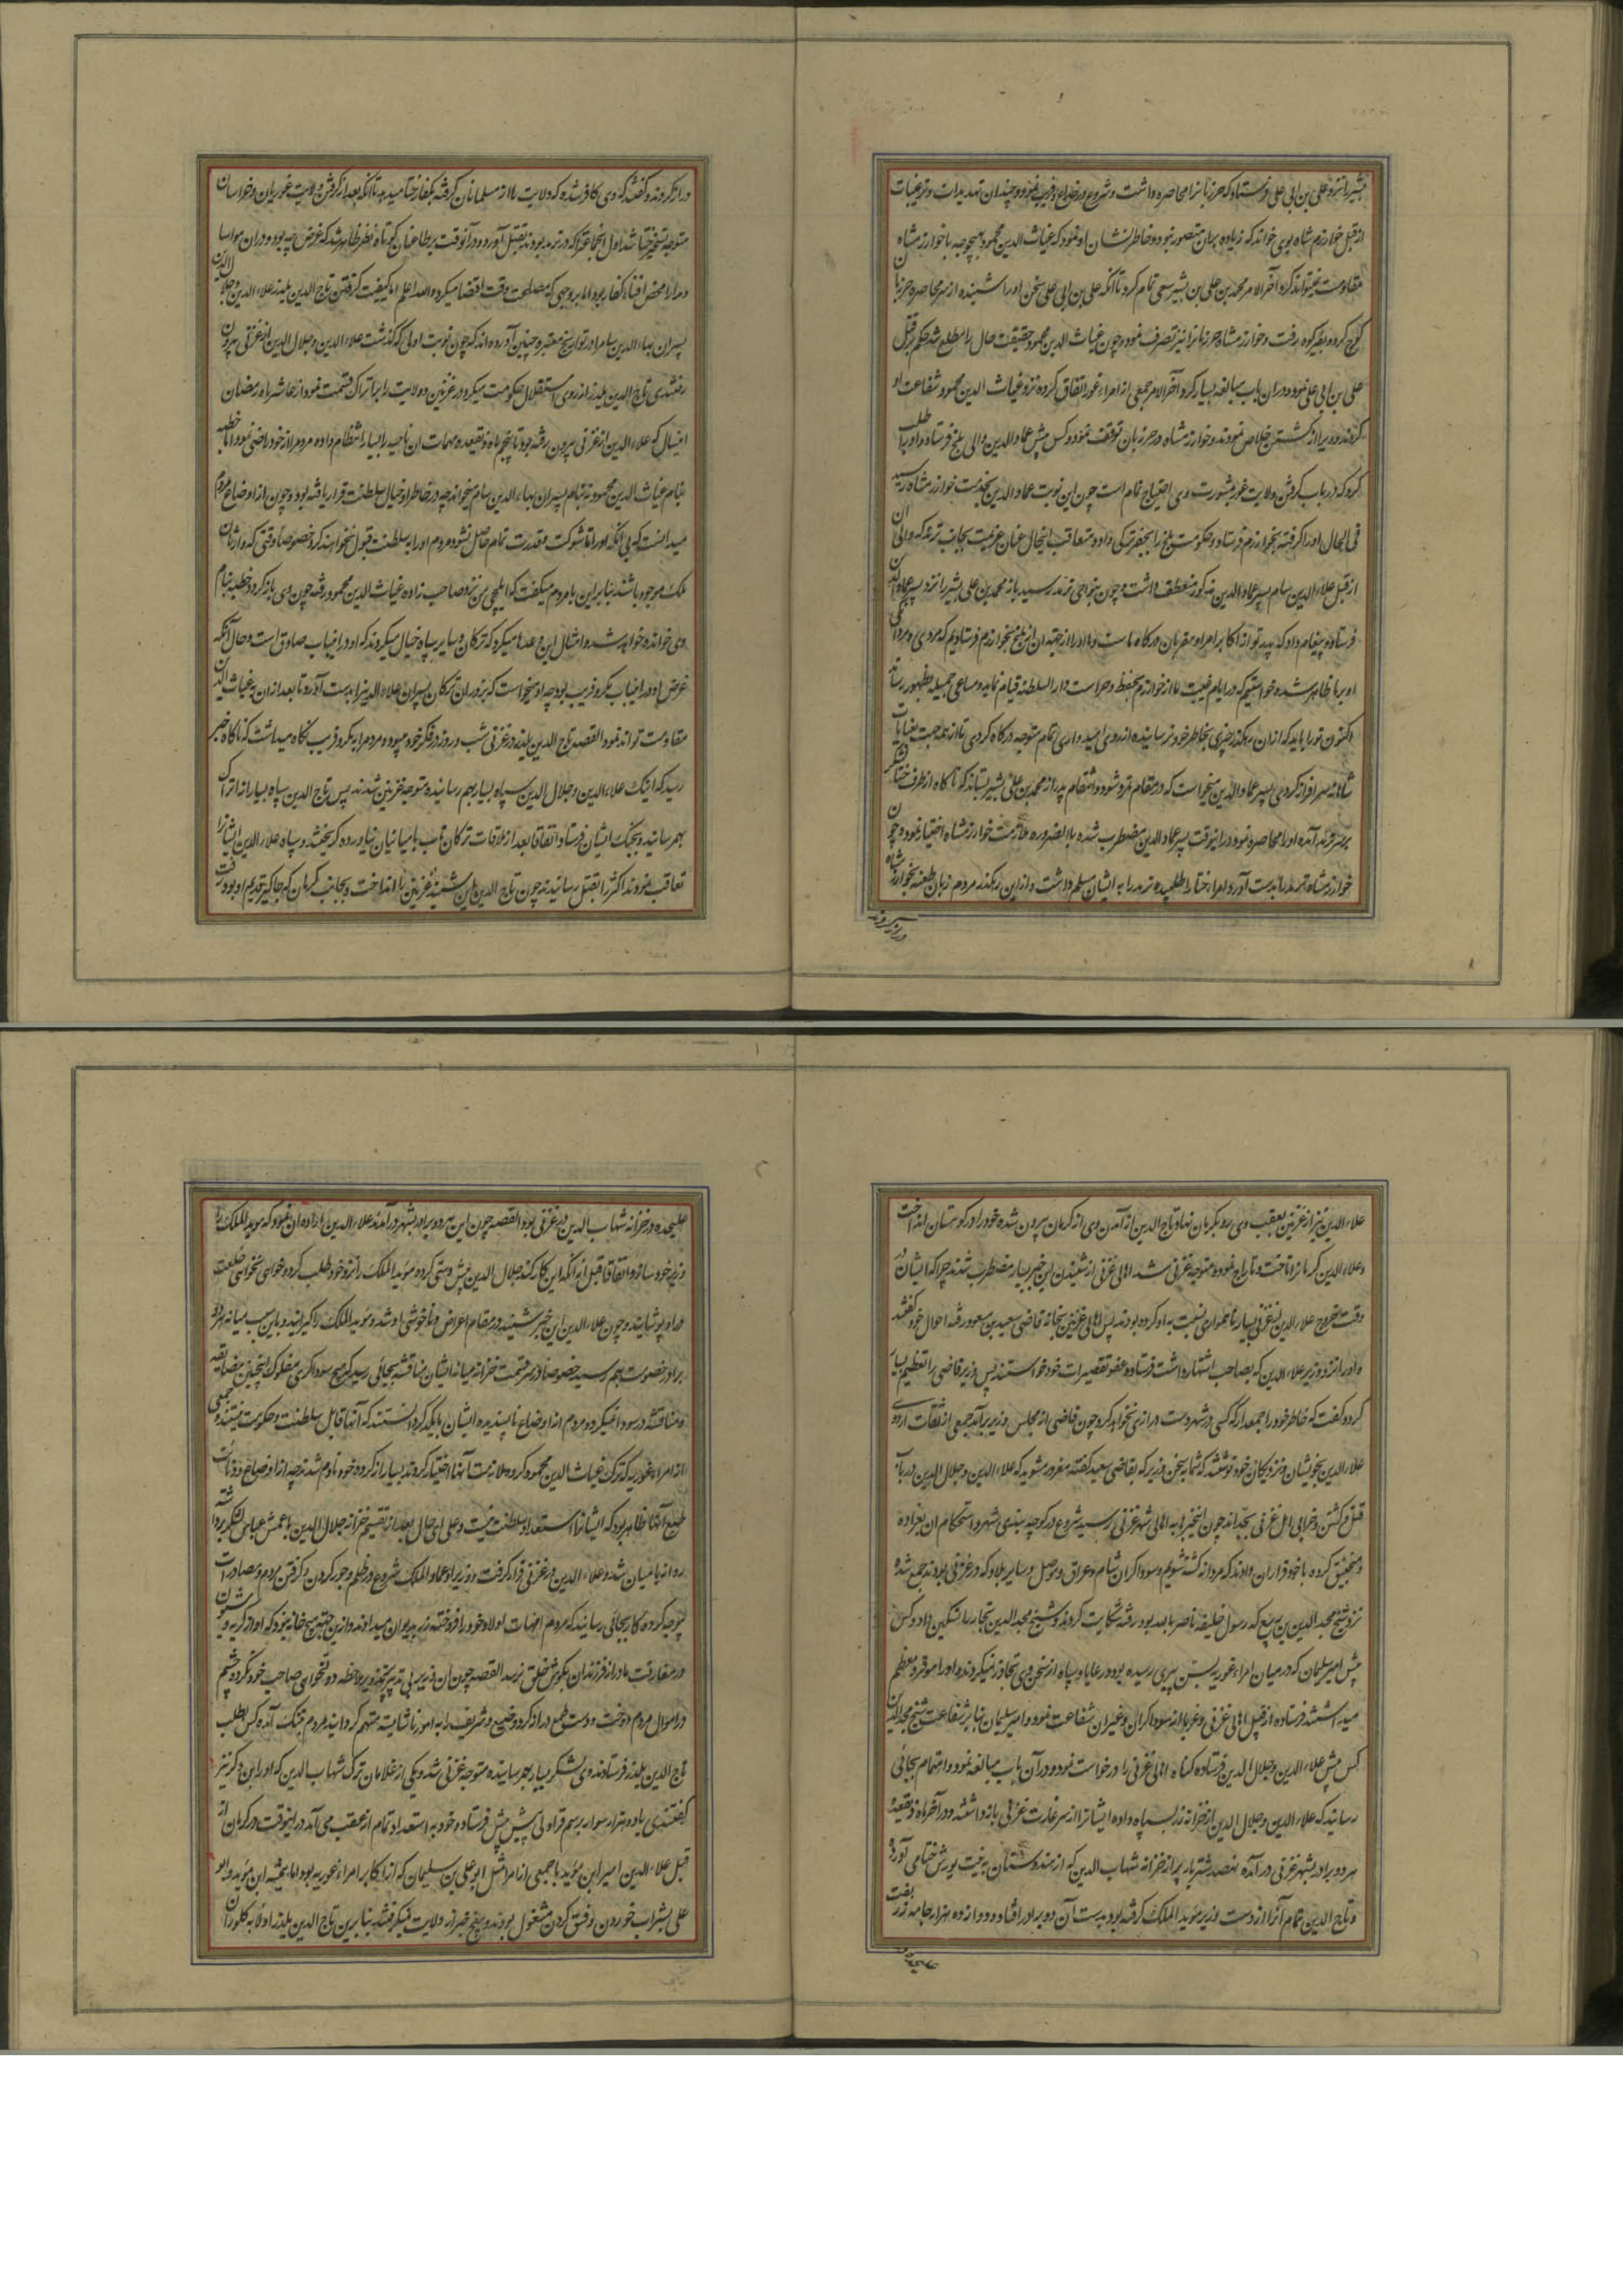 بشیر را نزد علی بن ابی علی فرستاد که حرزبانرا محاصره داشت و شروع در خداع و فریب نمود و چندان تهدیدات و ترغیبات
از قبل خوارزم شاه بوی خواند که زیاده بران متصور نبود و خاطرنشان او نمود که غیاث الدین محمود بهیچوجه با خوارزمشاه
مقاومت نمیتواند کرد آخر الامر محمد بن علی بن بشیر سعی تمام کرد تا آنکه علی بن ابی علی سخن او را شنیده از سر محاصره حرزبان
کوچ کرده بفیروزکوه رفت و خوارزمشاه حرزبانرا نیز تصرف نمود و چون غیاث الدین محمود حقیقت حال را مطلع شد حکم بر قتل
علی بن ابی علی نمود و دران باب مبالغه بسیار کرد آخر الامر جمعی از امراء غور اتفاق کرده نزد غیاث الدین محمود شفاعت او
کردند و ویرا از کشتن خلاص نمودند و خوارزمشاه در حرزبان توقف نمود و کس پیش عماد الدین والی بلخ فرستاد و او را طلب
کرد که در باب گرفتن ولایت غور بمشورت وی احتیاج تمام است چون این نوبت عماد الدین بخدمت خوارزمشاه رسید
فی الحال او را گرفته بخوارزم فرستاد و حکومت بلخ را بجعفر ترکی داد و متعاقب اینحال عنان عزیمت بجانب ترمذ که والی آن
از قبل علاء الدین سام پسر عماد الدین مذکور منعطف داشت و چون بنواحی ترمذ رسید باز محمد بن علی بشیر را نزد پسر عماد الدین
فرستاد و پیغام داد که پدر تو از اکابر امراء و مقربان درگاه ماست و ما او را از جهة آن از بلخ بخوارزم فرستادیم که مردی و مردانگی
او بر ما ظاهر شده خواستیم که در ایام غیبت ما از خوارزم بحفظ و حراست دار السلطنه قیام نماید و مساعی جمیله بظهور رساند
اکنون تو را باید که ازان رهگذر چیزی بخاطر خود نرسانیده از روی امیدواری تمام متوجه درگاه گردی تا از همه جهت بعنایات
شاهانه سرافراز گردی پسر عماد الدین میخواست که در مقام تمرد شود و انتقام پدر از محمد بن علی بشیر بستاند که ناگاه از طرف ختا لشکر
بر سر ترمذ آمده او را محاصره نمود درانوقت پسر عماد الدین مضطرب شده بالضروره ملازمت خوارزمشاه اختیار نمود و چون
خوارزمشاه ترمذ را بدست آورد امراء ختا را طلبیده ترمذ را به ایشان مسلم داشت و ازین رهگذر مردم زبان طعنه بخوارزمشاه
دراز کردند
دراز کردند و گفتند که وی کافر شده که ولایت را از مسلمانان گرفته بکفار ختا میدهد تا آنکه بعد از گرفتن ولایت غوریان و خراسان
متوجه تسخیر ختا شد اول آن جماعة را که در ترمذ بودند بقتل آورد و درآنوقت بر طاعنان کوتاه نظر ظاهر شد که غرض چه بود و دران مواسا
و مدارا محض افناء کفار بود اما بر وجهی که مصلحت وقت اقتضا میکرد والله اعلم اما کیفیت گرفتن تاج الدین یلدز علاء الدین و جلال الدین
پسران بهاء الدین سام را در تواریخ معتبره چنین آورده اند که چون نوبت اولی که گذشت علاء الدین و جلال الدین از غزنی بیرون
رفتند وی تاج الدین یلدز از روی استقلال حکومت میکرد در غزنین و ولایت را بر اتراک قسمت نمود از عاشر ماه رمضان
امسال که علاء الدین از غزنی بیرون رفته بود تا پنجم ماه ذیقعده مهمات ان ناحیه را بسیار انتظام داده مردم را از خود راضی نمود اما خطبه
بنام غیاث الدین محمود نه بنام پسران بهاء الدین سام میخواند چه در خاطر او خیال سلطنت قرار یافته بود و چون از اوضاع مردم
میدانست که بی آنکه او را تا شوکت و قدرت تمام حاصل نشود مردم او را بسلطنت قبول نخواهند کرد خصوصا وقتی که وارثان
ملک موجود باشند بنابراین با مردم میگفت که ایلچی من نزد صاحب زاده غیاث الدین محمود رفته چون وی باز گردد خطبه بنام
وی خوانده خواهد شد و امثال این وعدها میکرد که ترکان و سایر سپاه خیال میکردند که او درانباب صادق است و حال آنکه
غرض او درانباب مکر و فریب بود چه او میخواست که بزور ان ترکان پسران علاء الدین را بدست آورد تا بعد ازان به غیاث الدین
مقاومت تواند نمود القصه تاج الدین یلدز در غزنی شب و روز در فکر خود میبود و مردم را بمکر و فریب نگاه میداشت که ناگاه خبر
رسید که اینک علاء الدین و جلال الدین سپاه بسیار بهم رسانیده متوجه غزنین شدند پس تاج الدین سپاه بسیار از اتراک
بهم رسانید و بجنگ ایشان فرستاد اتفاقا بعد از ملاقات ترکان تاب بامیانیان نیاورده گریختند و سپاه علاء الدین ایشانرا
تعاقب نمودند اکثر را بقتل رسانیدند چون تاج الدین این شنید غزنین را انداخت و بجانب کرمان که جاگیر قدیم او بود رفت
علاء الدین نیز از غزنین بعقب وی رو بکرمان نهاد و تاج الدین از آمدن وی از کرمان بیرون شده خود را در کوهستان انداخت
و علاء الدین کرمانرا تاخت و تاراج نمود و متوجه غزنی شد اهالی غزنی از شنیدن این خبر بسیار مضطرب شدند چرا که ایشان در
وقت خروج علاء الدین از غزنی بسیار ناهمواری نسبت به او کرده بودند پس اهالی غزنین بخانه قاضی سعید بن مسعود رفته احوال خود گفتند
و او را نزد وزیر علاء الدین که بصاحب اشتهار داشت فرستاده عفو تقصیرات خود خواستند پس وزیر قاضی را تعظیم بسیار
کرد و گفت که خاطر خود را جمع دار که کسی در شهر دست درازی نخواهد کرد چون قاضی از مجلس وزیر برآمد جمعی از ثقات اردوی
علاء الدین بخویشان و نزدیکان خود نوشتند که شما به سخن وزیر که بقاضی سعید گفته مغرور مشوید که علاء الدین و جلال الدین در باب
قتل و کشتن و خرابی اهل غزنی بجد اند چون اینخبر به اهالی شهر غزنی رسید شروع در کوچه بندی شهر و استحکام ان بعراده
و منجنیق کرده با خود قرار ان دادند که مردانه کشته شویم و سوداگران شام و عراق و موصل و سایر بلاد که در غزنی بودند جمع شده
نزد شیخ مجد الدین بن ربیع که رسول خلیفه ناصر بالله بود رفته شکایت کردند و شیخ مجد الدین تجار را تسکین داد و کس
پیش امیر سلیمان که در میان امراء غوریه بسن پیری رسیده بود و رعایا و سپاه از سخن وی تجاوز نمیکردند و او را موقر و معظم
میداشتند فرستاده از قبل اهالی غزنی و غربا از سوداگران و غیر ان شفاعت نمود و امیر سلیمان بنا بر شفاعت شیخ مجد الدین
کس پیش علاء الدین و جلال الدین فرستاده گناه اهالی غزنی را درخواست نمود و در آن باب مبالغه نمود و اهتمام بجائی
رسانید که علاء الدین و جلال الدین از خزانه زر بسپاه داده ایشانرا از سر غارت غزنی باز داشتند و در آخر ماه ذیقعده
هر دو برادر بشهر غزنی در آمده نهصد شتر بار پر از خزانه شهاب الدین که از هندوستان به نیت یورش ختا می آورد
و تاج الدین تمام آنرا از دست وزیر مؤید الملک گرفته بود بدست آن دو برادر افتاد و دوازده هزار جامه زربفت
علیحده
علیحده در خزانه شهاب الدین در غزنی بود القصه چون این هر دو برادر بشهر درآمدند علاء الدین اراده ان نمود که مؤید الملک را
وزیر خود سازد و اتفاقا قبل از انکه این کار کند جلال الدین پیش دستی کرده مؤید الملک را نزد خود طلب کرد و خواهی نخواهی خلعت
در او پوشانید و چون علاء الدین این خبر شنید در مقام اعراض و ناخوشی او شد و مؤید الملک را گیرانید و باین سبب میانه هر دو
برادر خصومت بهم رسید خصوصا در سر قسمت خزانه میانه ایشان مناقشه بجائی رسید که هیچ سوداگری مفلوک اینچنین مضایقه
و مناقشه در سودا نمیکرد و مردم از اوضاع ناپسندیده ایشان بایکدیگر دانستند که آنها قابل سلطنت و حکومت نیستند و جمعی
از امراء غوریه که ترک غیاث الدین محمود کرده ملازمت آنها اختیار کردند بسیار از کرده خود نادم شدند چه از اوضاع و دنائت
طبع آنها ظاهر بود که ایشانرا استعداد سلطنت نیست و علی ای حال بعد از تقسیم خزانه جلال الدین با عمش عباس لشکر برداشته
روانه بامیان شد و علاء الدین در غزنی قرار گرفت و وزیر او عماد الملک شروع در ظلم و جور کردن و گرفتن مردم و مصادرات
بوجه کرده کار بجائی رسانید که مردم امهات اولاد خود را فروخته زر بدیوان میدادند و ازین جهة هیچ خانه نبود که آواز گریه و شیون
در مفارقت مادر از فرزندان بگوش خلق نرسد القصه چون ان وزیر بی تدبیر
در اموال مردم دوخت و دست طمع دراز کرد و وضیع و شریف را به امور ناشایسته متهم گردانید مردم بتنگ آمده کس بطلب
تاج الدین یلدز فرستادند و وی لشکر بسیار بهم رسانیده متوجه غزنی شد و یکی از غلامان ترک شهاب الدین که او را این دکز نیز
گفتندی با دو هزار سوار برسم قراولی پیش پیش فرستاد و خود به استعداد تمام از عقب می آمد درانوقت در کرمان از
قبل علاء الدین امیر ابن مؤید با جمعی از امرا مثل ابو علی بن سلیمان که از اکابر امراء غوریه بود اما همیشه ابن مؤید و ابو
علی بشراب خوردن و فسق کردن مشغول بودند و هیچ خبر از ولایت نمیگرفتند بنابرین تاج الدین یلدز اولا به کلوزان